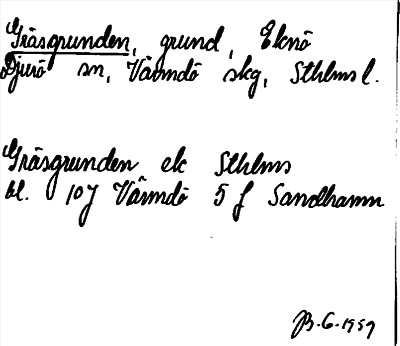 Gräsgrunden, grund, Eknö
Djurö sn, Värmdö skg, Sthlms l.
Gräsgrunden ek Sthlms
bl. 107 Värmdö 5 f Sandhamn
B.G. 1959